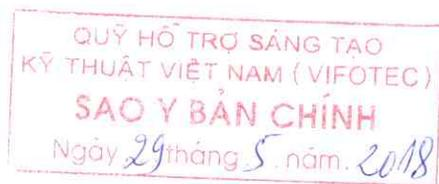 QUỸ HỖ TRỢ SÁNG TẠO
KỸ THUẬT VIỆT NAM (VIFOTEC)
SAO Y BẢN CHÍNH
Ngày 29 tháng 5 năm. 2018